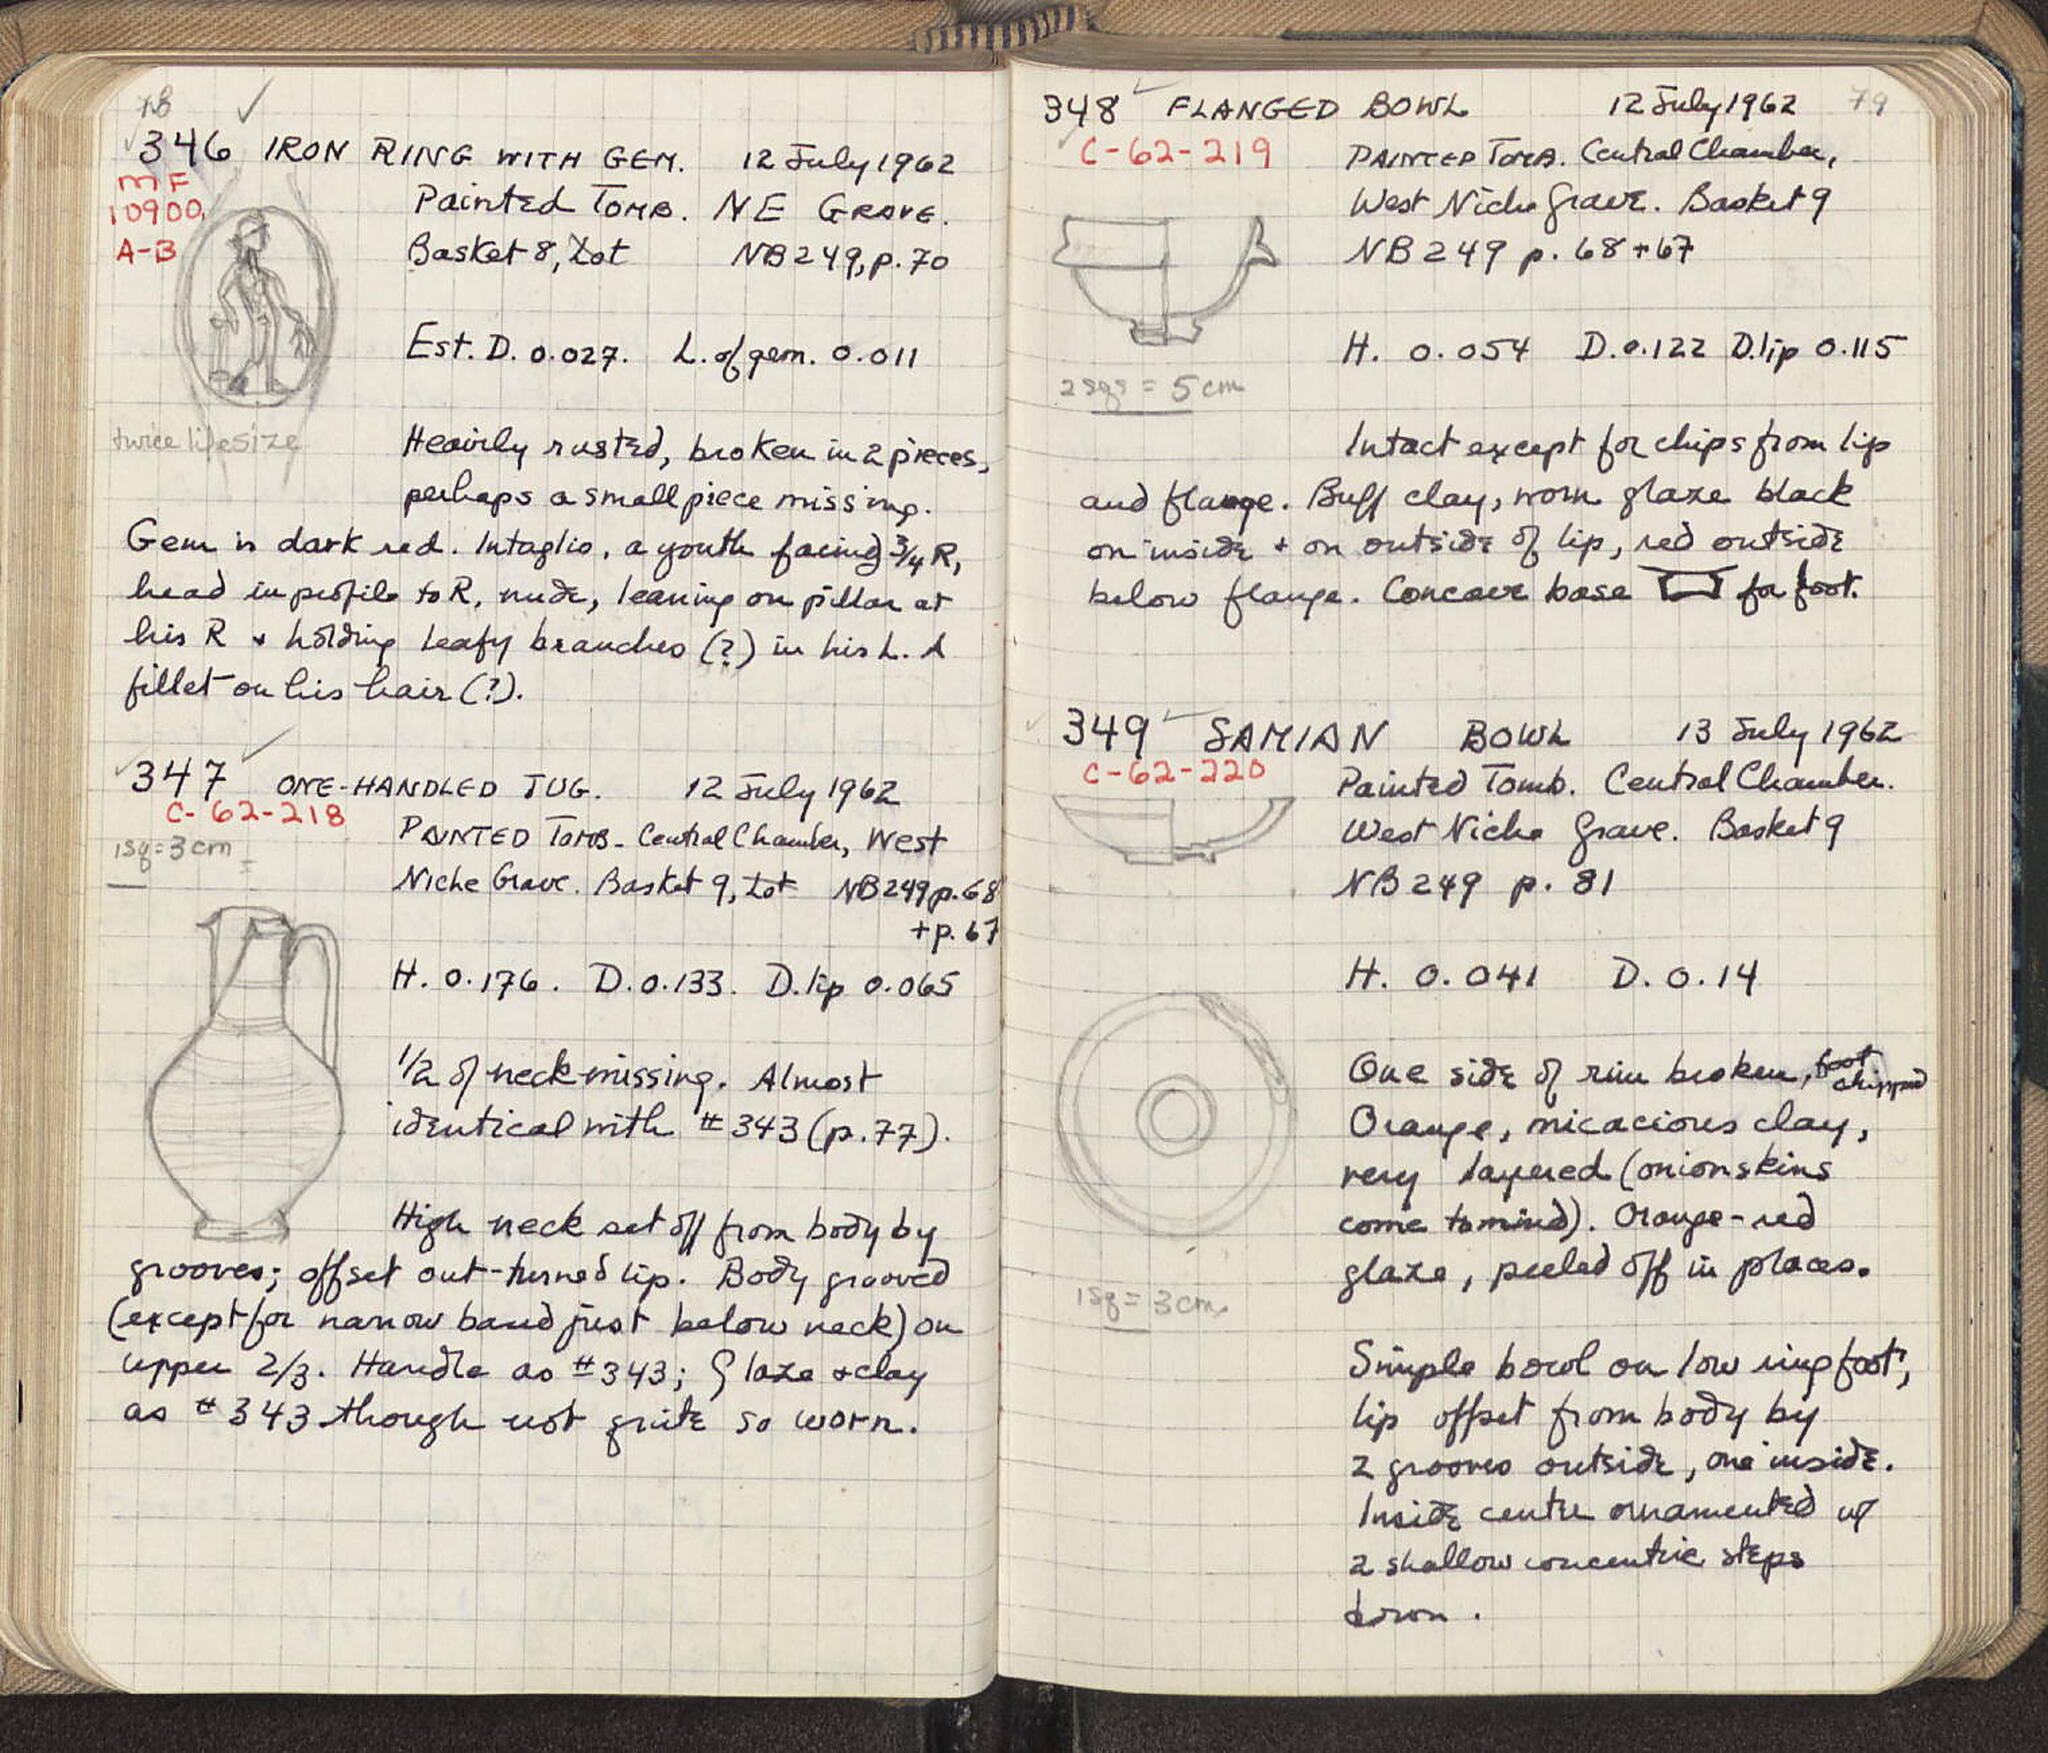 78
346 IRON RING WITH GEM. 12 July 1962
MF
10900
A-B
Painted Tomb. NE Grave.
Basket 8, Lot NB 249, p. 70
Est. D. 0.027. L. of gem. 0.011
twice lifesize
Heavily rusted, broken in 2 pieces,
perhaps a small piece missing.
Gem is dark red. Intaglio, a youth facing 3/4 R,
head in profile to R, nude, leaning on pillar at
his R + holding leafy branches (?) in his L. A
fillet on his hair (?).
347 ONE-HANDLED JUG. 12 July 1962
C-62-218
PAINTED TOMB - Central Chamber, West
1 sq = 3 cm
Niche Grave. Basket 9, Lot NB 249 p. 68
+ p. 67
H. 0.176. D. 0.133. D. lip 0.065
1/2 of neck missing. Almost
identical with #343 (p. 77).
High neck set off from body by
grooves; offset out-turned lip. Body grooved
(except for narrow band just below neck) on
upper 2/3. Handle as #343; Glaze + clay
as #343 though not quite so worn.
79
348 FLANGED BOWL 12 July 1962
C-62-219
PAINTED TOMB. Central Chamber,
West Niche Grave. Basket 9
NB 249 p. 68 + 67
H. 0.054 D. 0.122 D. lip 0.115
2 sqs = 5 cm
Intact except for chips from lip
and flange. Buff clay, worn glaze black
on inside + on outside of lip, red outside
below flange. Concave base for foot.
349 SAMIAN BOWL 13 July 1962
C-62-220
Painted Tomb. Central Chamber.
West Niche Grave. Basket 9
NB 249 p. 81
H. 0.041 D. 0.14
One side of rim broken, foot chipped
Orange, micacious clay,
very layered (onion skins
come to mind). Orange-red
glaze, peeled off in places.
1 sq = 3 cm
Simple bowl on low ring foot,
lip offset from body by
2 grooves outside, one inside.
Inside centre ornamented w/
2 shallow concentric steps
down.